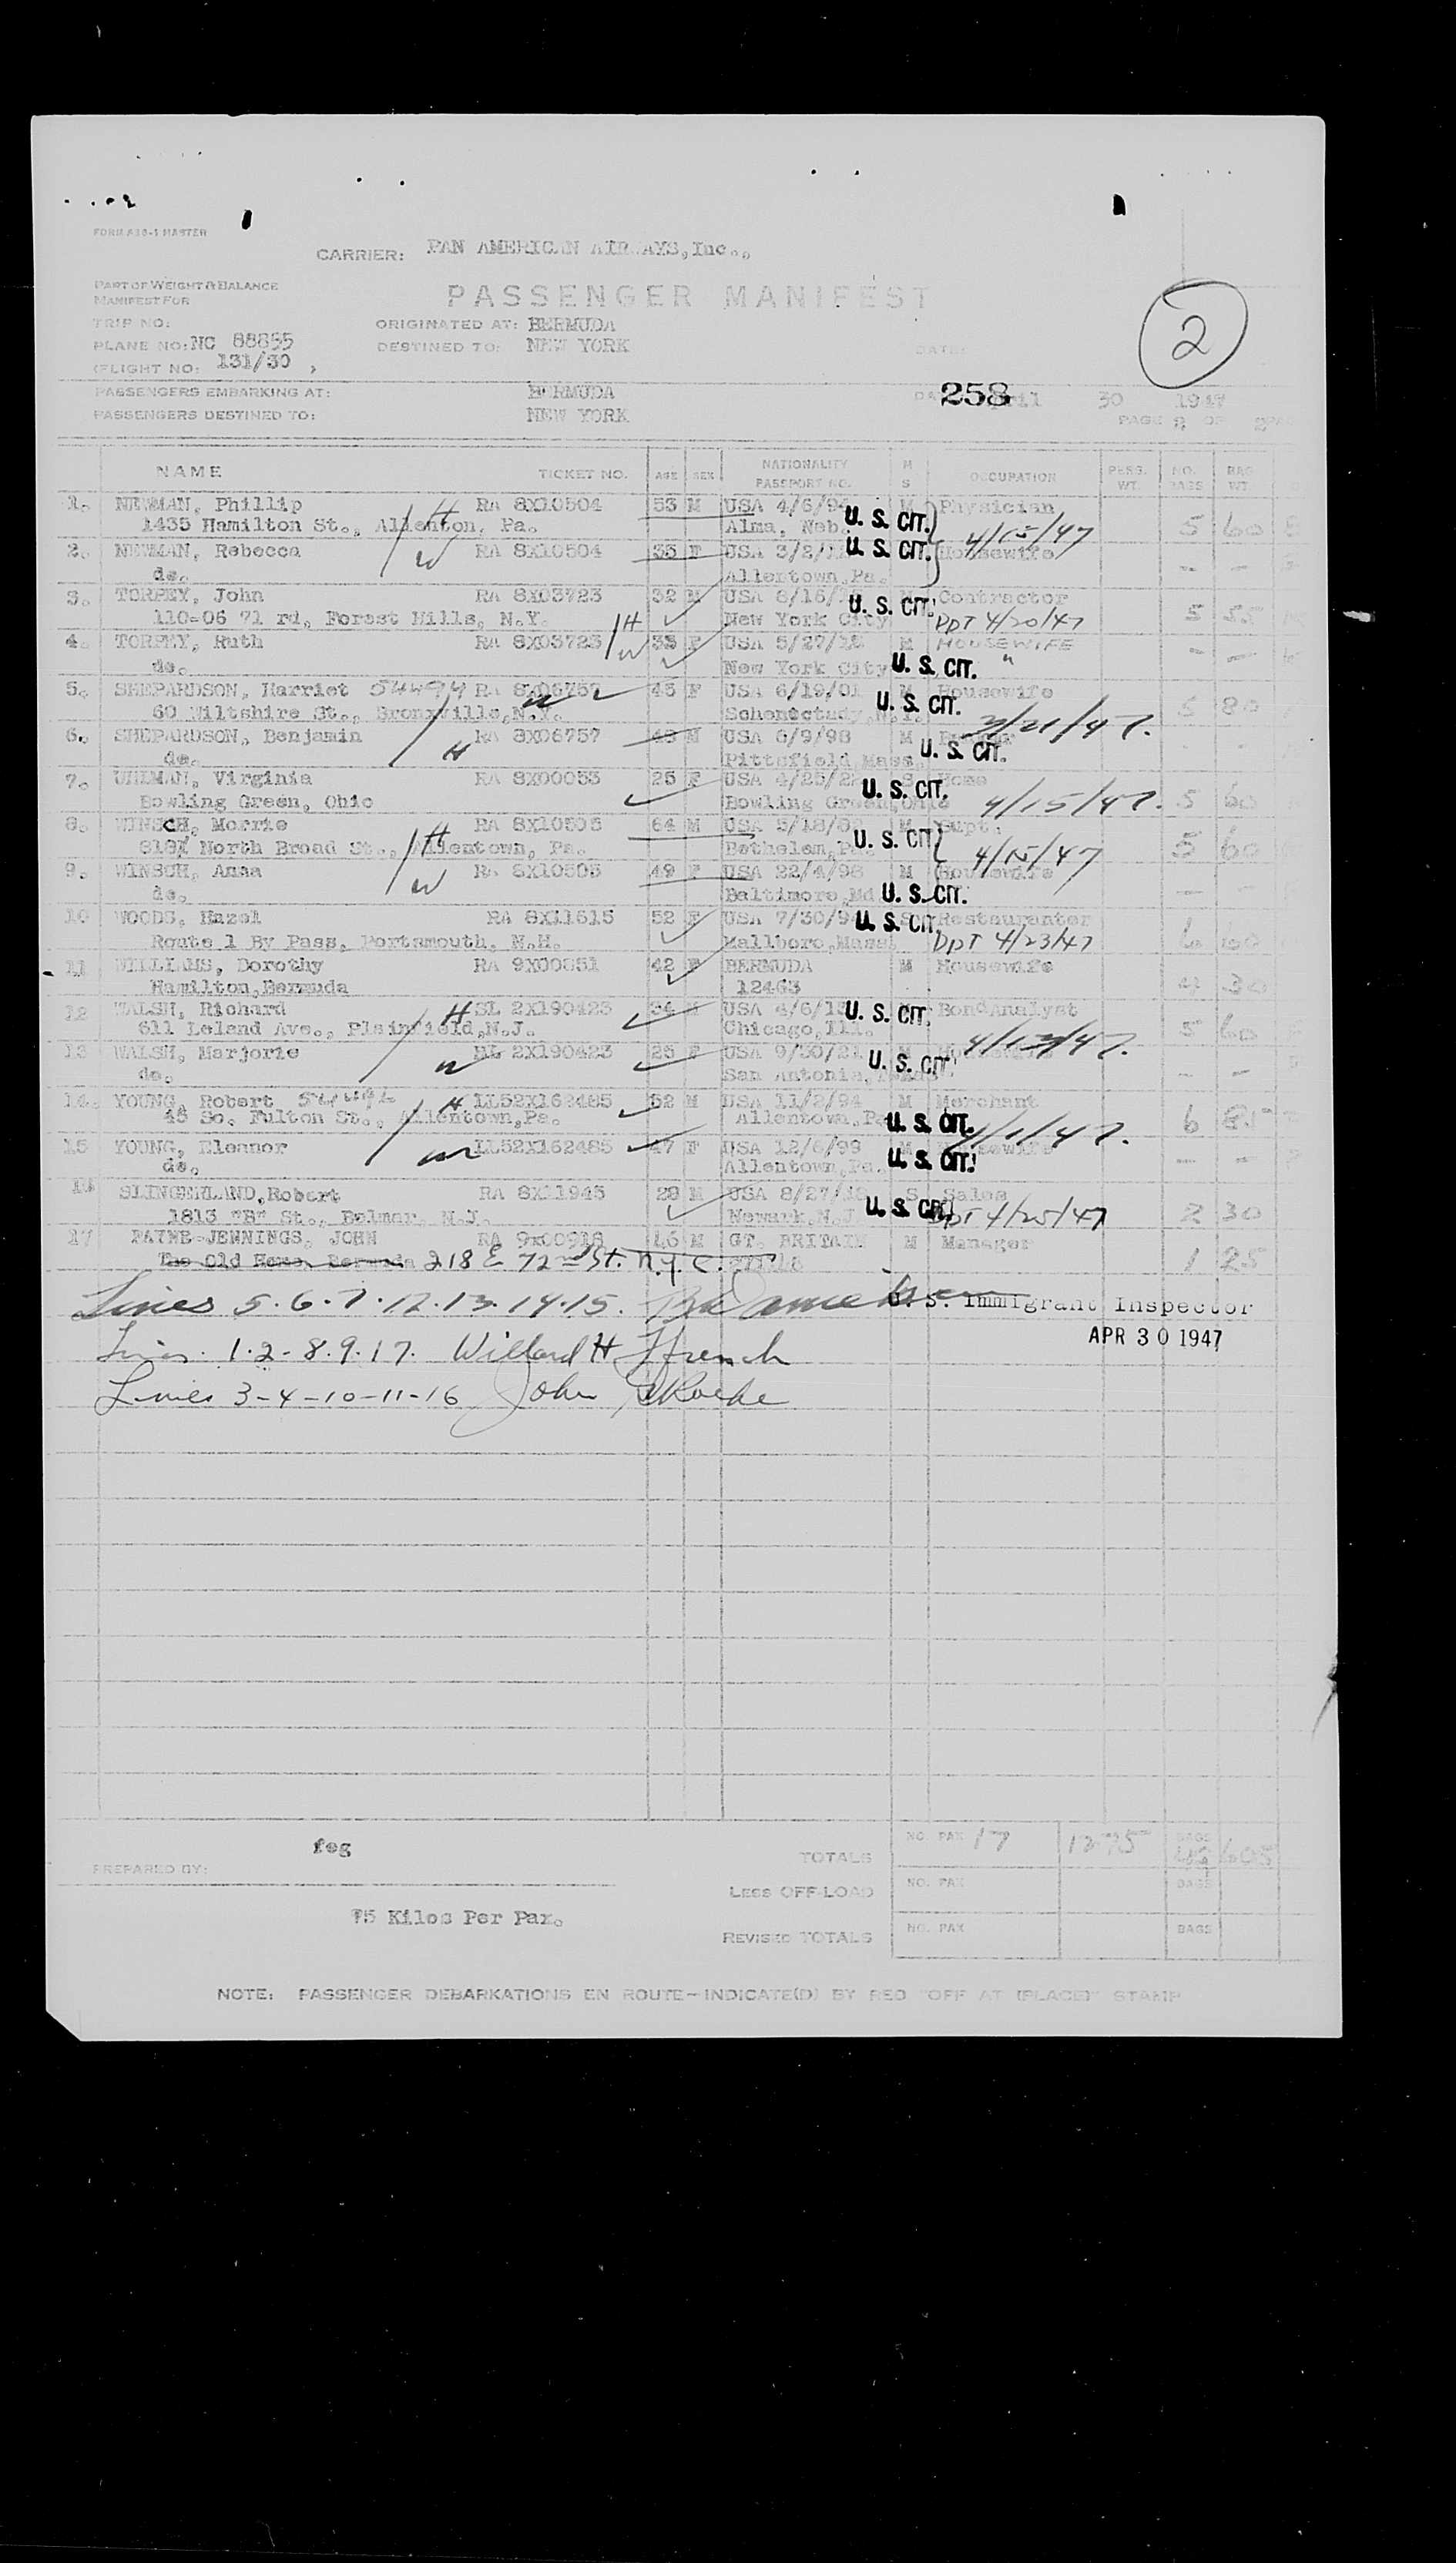 FORM A30-1 MASTER
CARRIER: PAN AMERICAN AIRWAYS, Inc.,
PART OF WEIGHT & BALANCE
MANIFEST FOR
PASSENGER MANIFEST
2
TRIP NO: ORIGINATED AT: BERMUDA
PLANE NO: NC 88855 DESTINED TO: NEW YORK DATE:
(FLIGHT NO: 131/30 ,
PASSENGERS EMBARKING AT: BERMUDA 258 30 1947
PASSENGERS DESTINED TO: NEW YORK PAGE 2 OF 2
NAME TICKET NO. AGE SEX NATIONALITY PASSPORT NO. M S OCCUPATION PERS. WT. NO. BAGS BAG WT.
1. NEWMAN, Phillip H RA 8X10504 53 M USA 4/6/94 U. S. CIT. M Physician
1435 Hamilton St., Allenton, Pa. Alma, Neb. 4/15/47 5 60
2. NEWMAN, Rebecca W RA 8X10504 35 F USA 3/2/ U. S. CIT. Housewife
do. Allentown,Pa. — —
3. TORPEY, John RA 8X03723 32 M USA 6/16/ U. S. CIT. Contractor
110-06 71 rd, Forest Hills, N.Y. H New York City DPT 4/20/47 5 55
4. TORPEY, Ruth RA 8X03723 W 33 F USA 5/27/ M HOUSEWIFE
do. New York City U. S. CIT. " — —
5. SHEPARDSON, Harriet 54494 RA 8X06757 W 45 F USA 6/19/01 U. S. CIT. M Housewife
60 Wiltshire St., Bronxville,N.Y. Schenectady,N.Y. 3/21/47. 5 80
6. SHEPARDSON, Benjamin RA 8X06757 48 M USA 6/9/98 M
do. H Pittsfield,Mass. U. S. CIT.
7. UHLMAN, Virginia RA 8X00053 25 F USA 4/25/2 S Home
Bowling Green, Ohio Bowling Green,Ohio U. S. CIT. 4/15/47. 5 60
8. WINSCH, Morris H RA 8X10505 64 M USA 5/18/8 M Supt.
North Broad St., Allentown, Pa. Bethelem,Pa. U. S. CIT 4/15/47 5 60
9. WINSCH, Anna W RA 8X10505 49 F USA 22/4/98 M Housewife
do. Baltimore,Md U. S. CIT. — —
10 WOODS, Hazel RA 8X11615 52 F USA 7/30/94 U. S. CIT. S Restauranter
Route 1 By Pass, Portsmouth, N.H. Mallboro,Mass. DPT 4/23/47 6 60
11 WILLIAMS, Dorothy RA 9X00851 42 F BERMUDA M Housewife
Hamilton,Bermuda 12463 4 30
12 WALSH, Richard H SL 2X190423 34 M USA 4/6/13 U. S. CIT. Bond Analyst
611 Leland Ave., Plainfield,N.J. Chicago,Ill. 4/13/47. 5 60
13 WALSH, Marjorie W SL 2X190423 25 F USA 9/30/21 M
do. San Antonio,Texas U. S. CIT. — —
14. YOUNG, Robert H LL52X162485 52 M USA 11/2/94 M Merchant
45 So. Fulton St., Allentown,Pa. Allentown,Pa U. S. CIT. 4/1/47. 6
15 YOUNG, Eleanor W LL52X162485 47 F USA 12/6/99 M Housewife
do. Allentown,Pa. U. S. CIT. — —
16 SLINGERLAND,Robert RA 8X11945 28 M USA 8/27/18 S Sales
1813 "B" St., Belmar, N.J. Newark,N.J U. S. CIT. DPT 4/25/47 2 30
17 PAYNE-JENNINGS, JOHN RA 9X00918 46 M GT. BRITAIN M Manager
The Old House, Bermuda 218 E 72nd St. N.Y.C. 1 25
Lines 5.6.7.12.13.14.15. U. S. Immigrant Inspector
APR 30 1947
Lines 1.2-8.9.17. Willard H Ffrench
Lines 3-4-10-11-16 John
feg
PREPARED BY:
TOTALS NO. PAX 17 1275 BAGS 49 605
LESS OFF-LOAD NO. PAX BAGS
75 Kilos Per Pax.
REVISED TOTALS NO. PAX BAGS
NOTE: PASSENGER DEBARKATIONS EN ROUTE—INDICATE(D) BY RED "OFF AT (PLACE)" STAMP